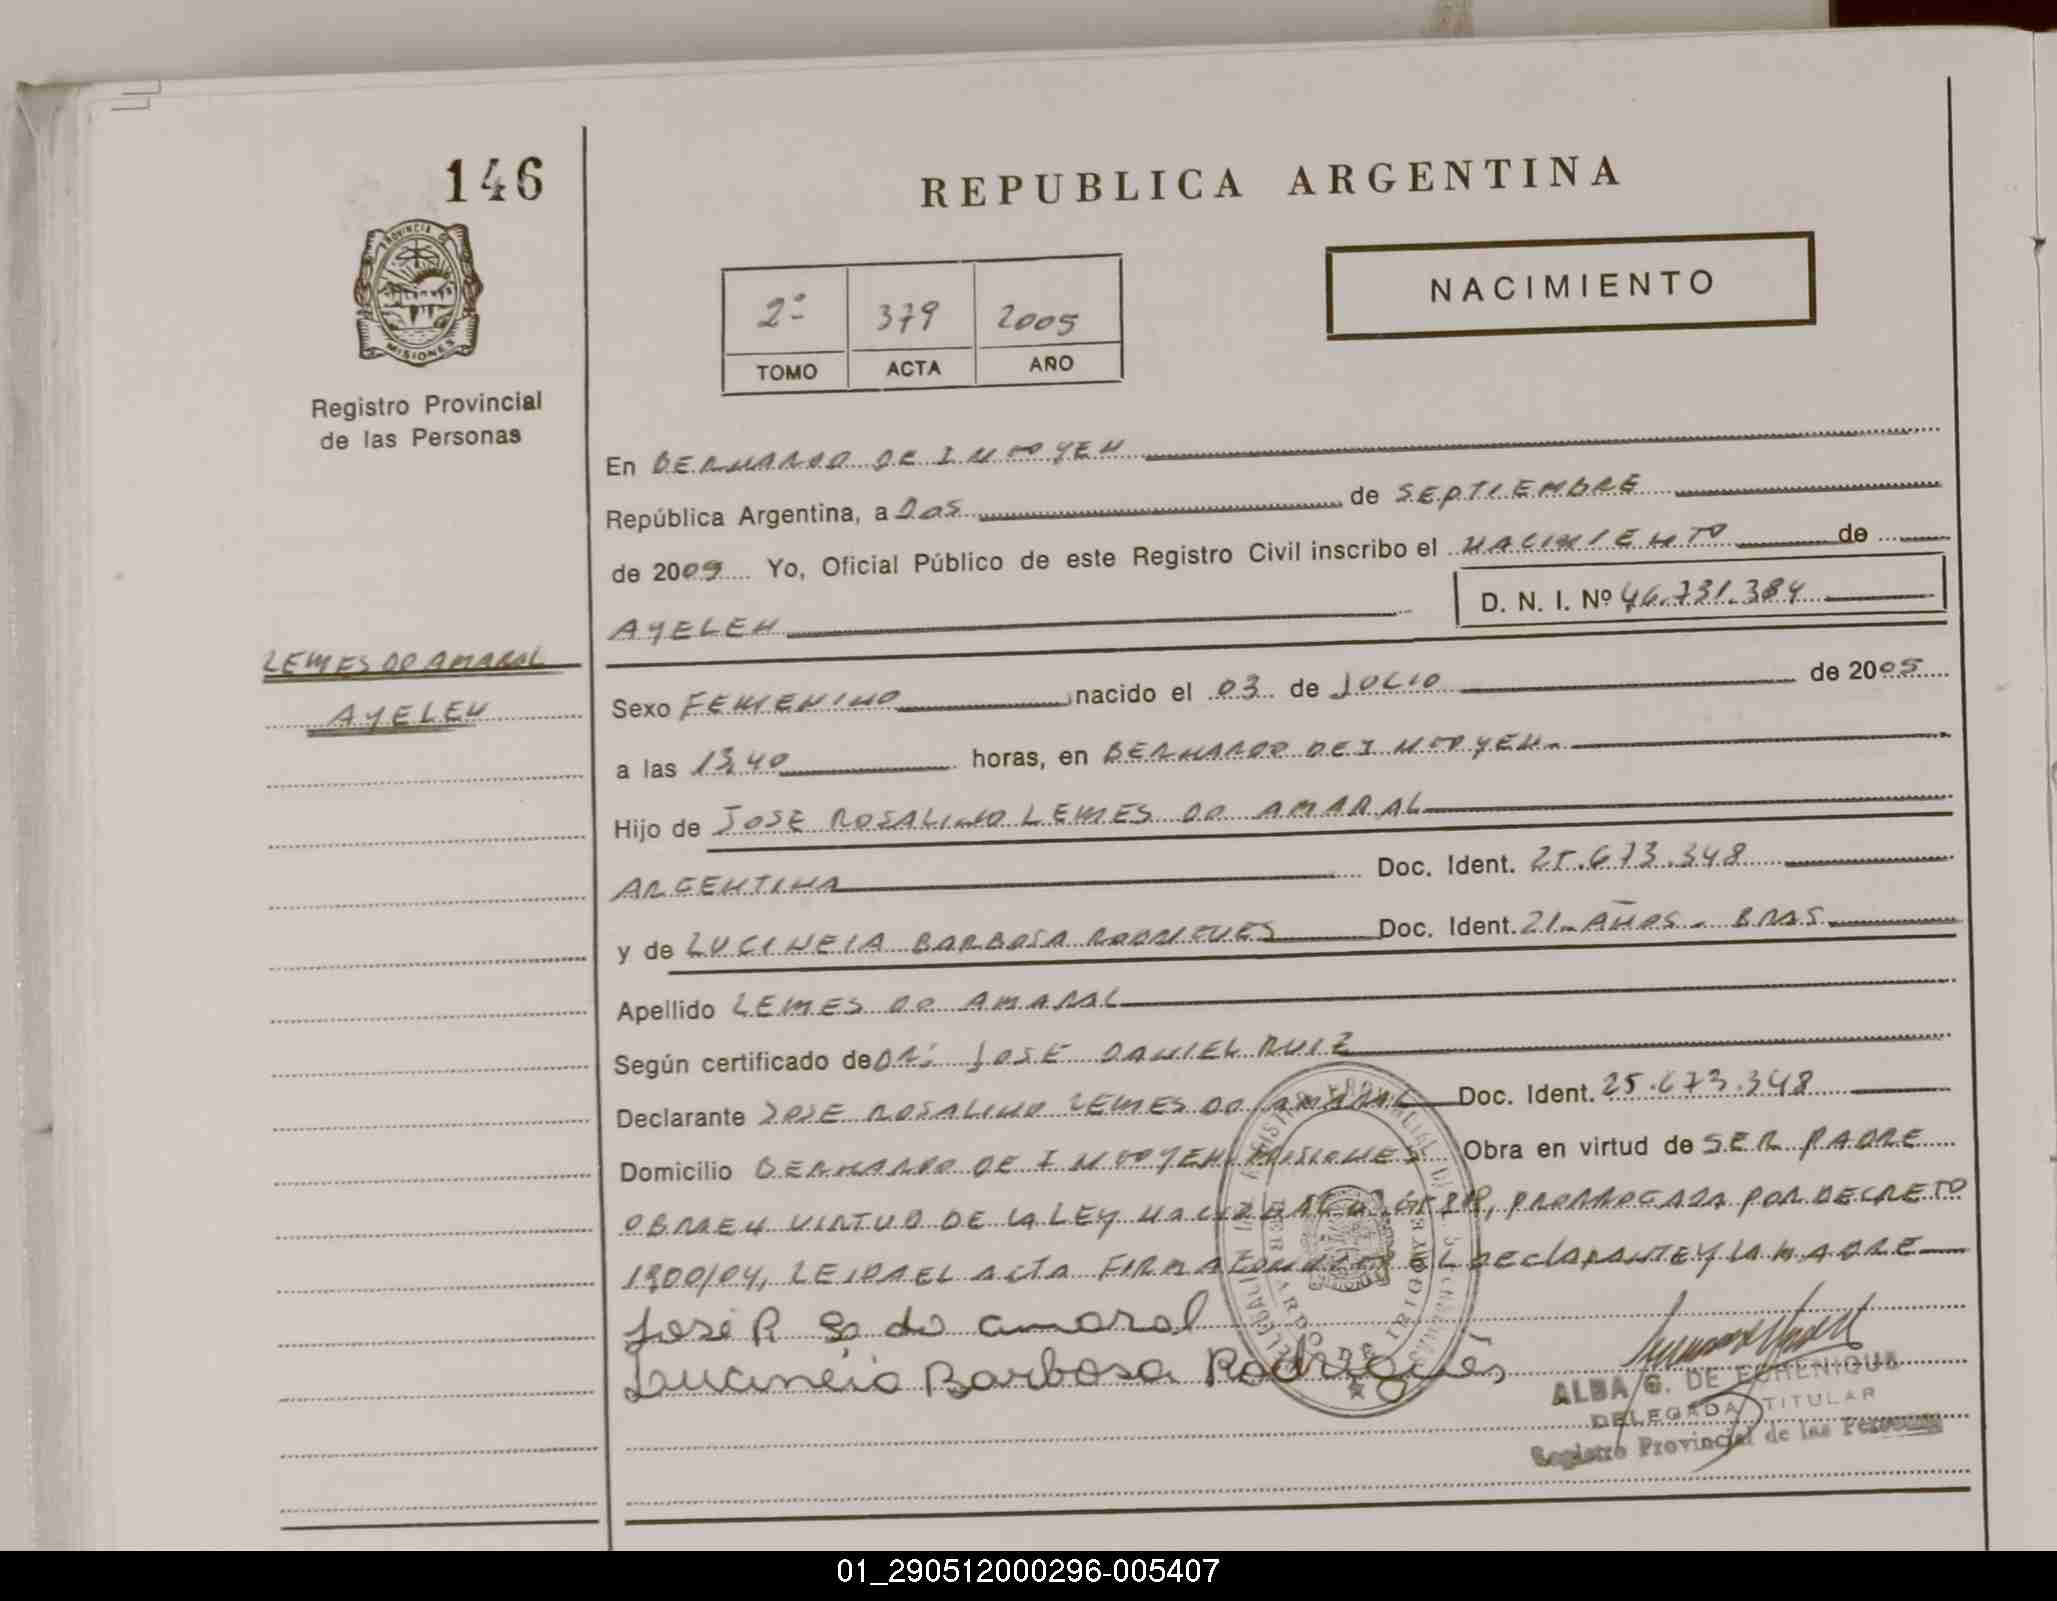 146
REPUBLICA ARGENTINA
PROVINCIA DE
MISIONES
NACIMIENTO
2º 379 2005
TOMO ACTA AÑO
Registro Provincial
de las Personas
En BERNARDO DE IRIGOYEN
República Argentina, a DOS de SEPTIEMBRE
de 2009 Yo, Oficial Público de este Registro Civil inscribo el NACIMIENTO de
AYELEN D. N. I. Nº 46.731.384
LEMES DO AMARAL
AYELEN
Sexo FEMENINO nacido el 03 de JULIO de 2005
a las 13,40 horas, en BERNARDO DE IRIGOYEN.
Hijo de JOSE ROSALINO LEMES DO AMARAL
ARGENTINA Doc. Ident. 25.673.348
y de LUCINEIA BARBOSA RODRIGUES Doc. Ident. 21-AÑOS- BRAS
Apellido LEMES DO AMARAL
Según certificado de DR: JOSE DANIEL RUIZ
Declarante JOSE ROSALINO LEMES DO AMARAL Doc. Ident. 25.673.348
Domicilio BERNARDO DE IRIGOYEN MISIONES Obra en virtud de SER PADRE
OBRA EN VIRTUD DE LA LEY NACIONAL PRORROGADA POR DECRETO
1900/04, LEIDA EL ACTA FIRMA EL DECLARANTE Y LA MADRE
José R do amaral
Lucinéia Barbosa Rodrigues
ALBA G. DE ECHENIQUE
DELEGADA TITULAR
Registro Provincial de las Personas
01_290512000296-005407